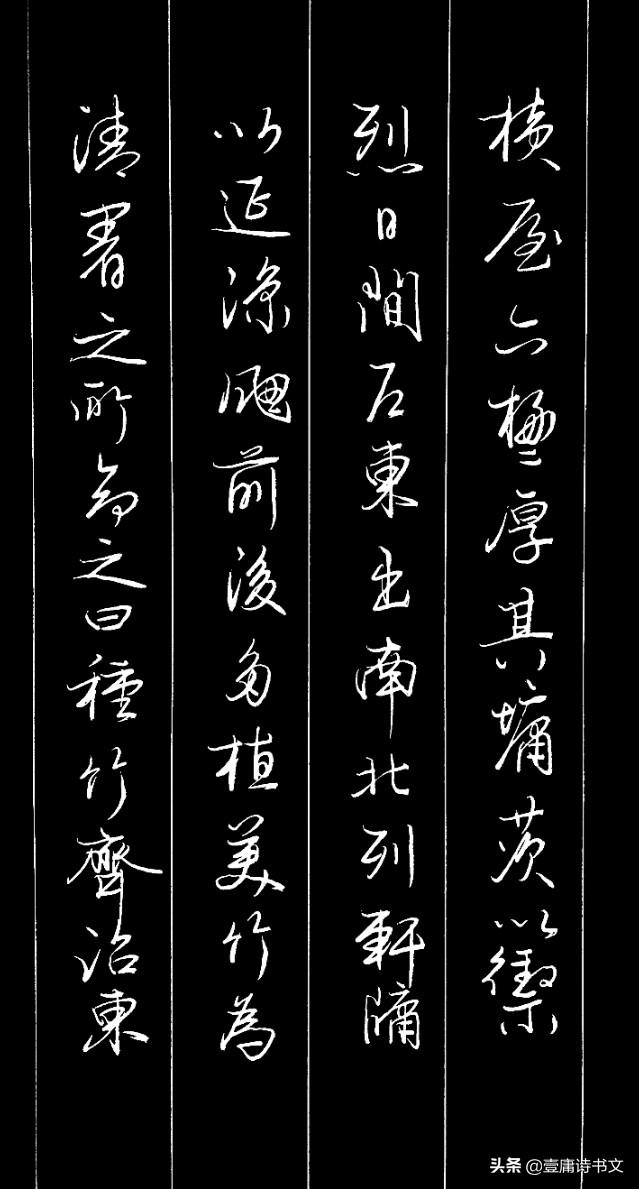 横屋六楹厚其墉茨以禦
烈日間后東出南北列軒牖
以延涼颸前後多植美竹為
清署之所命之曰種竹齊治東
头条 @壹庸诗书文